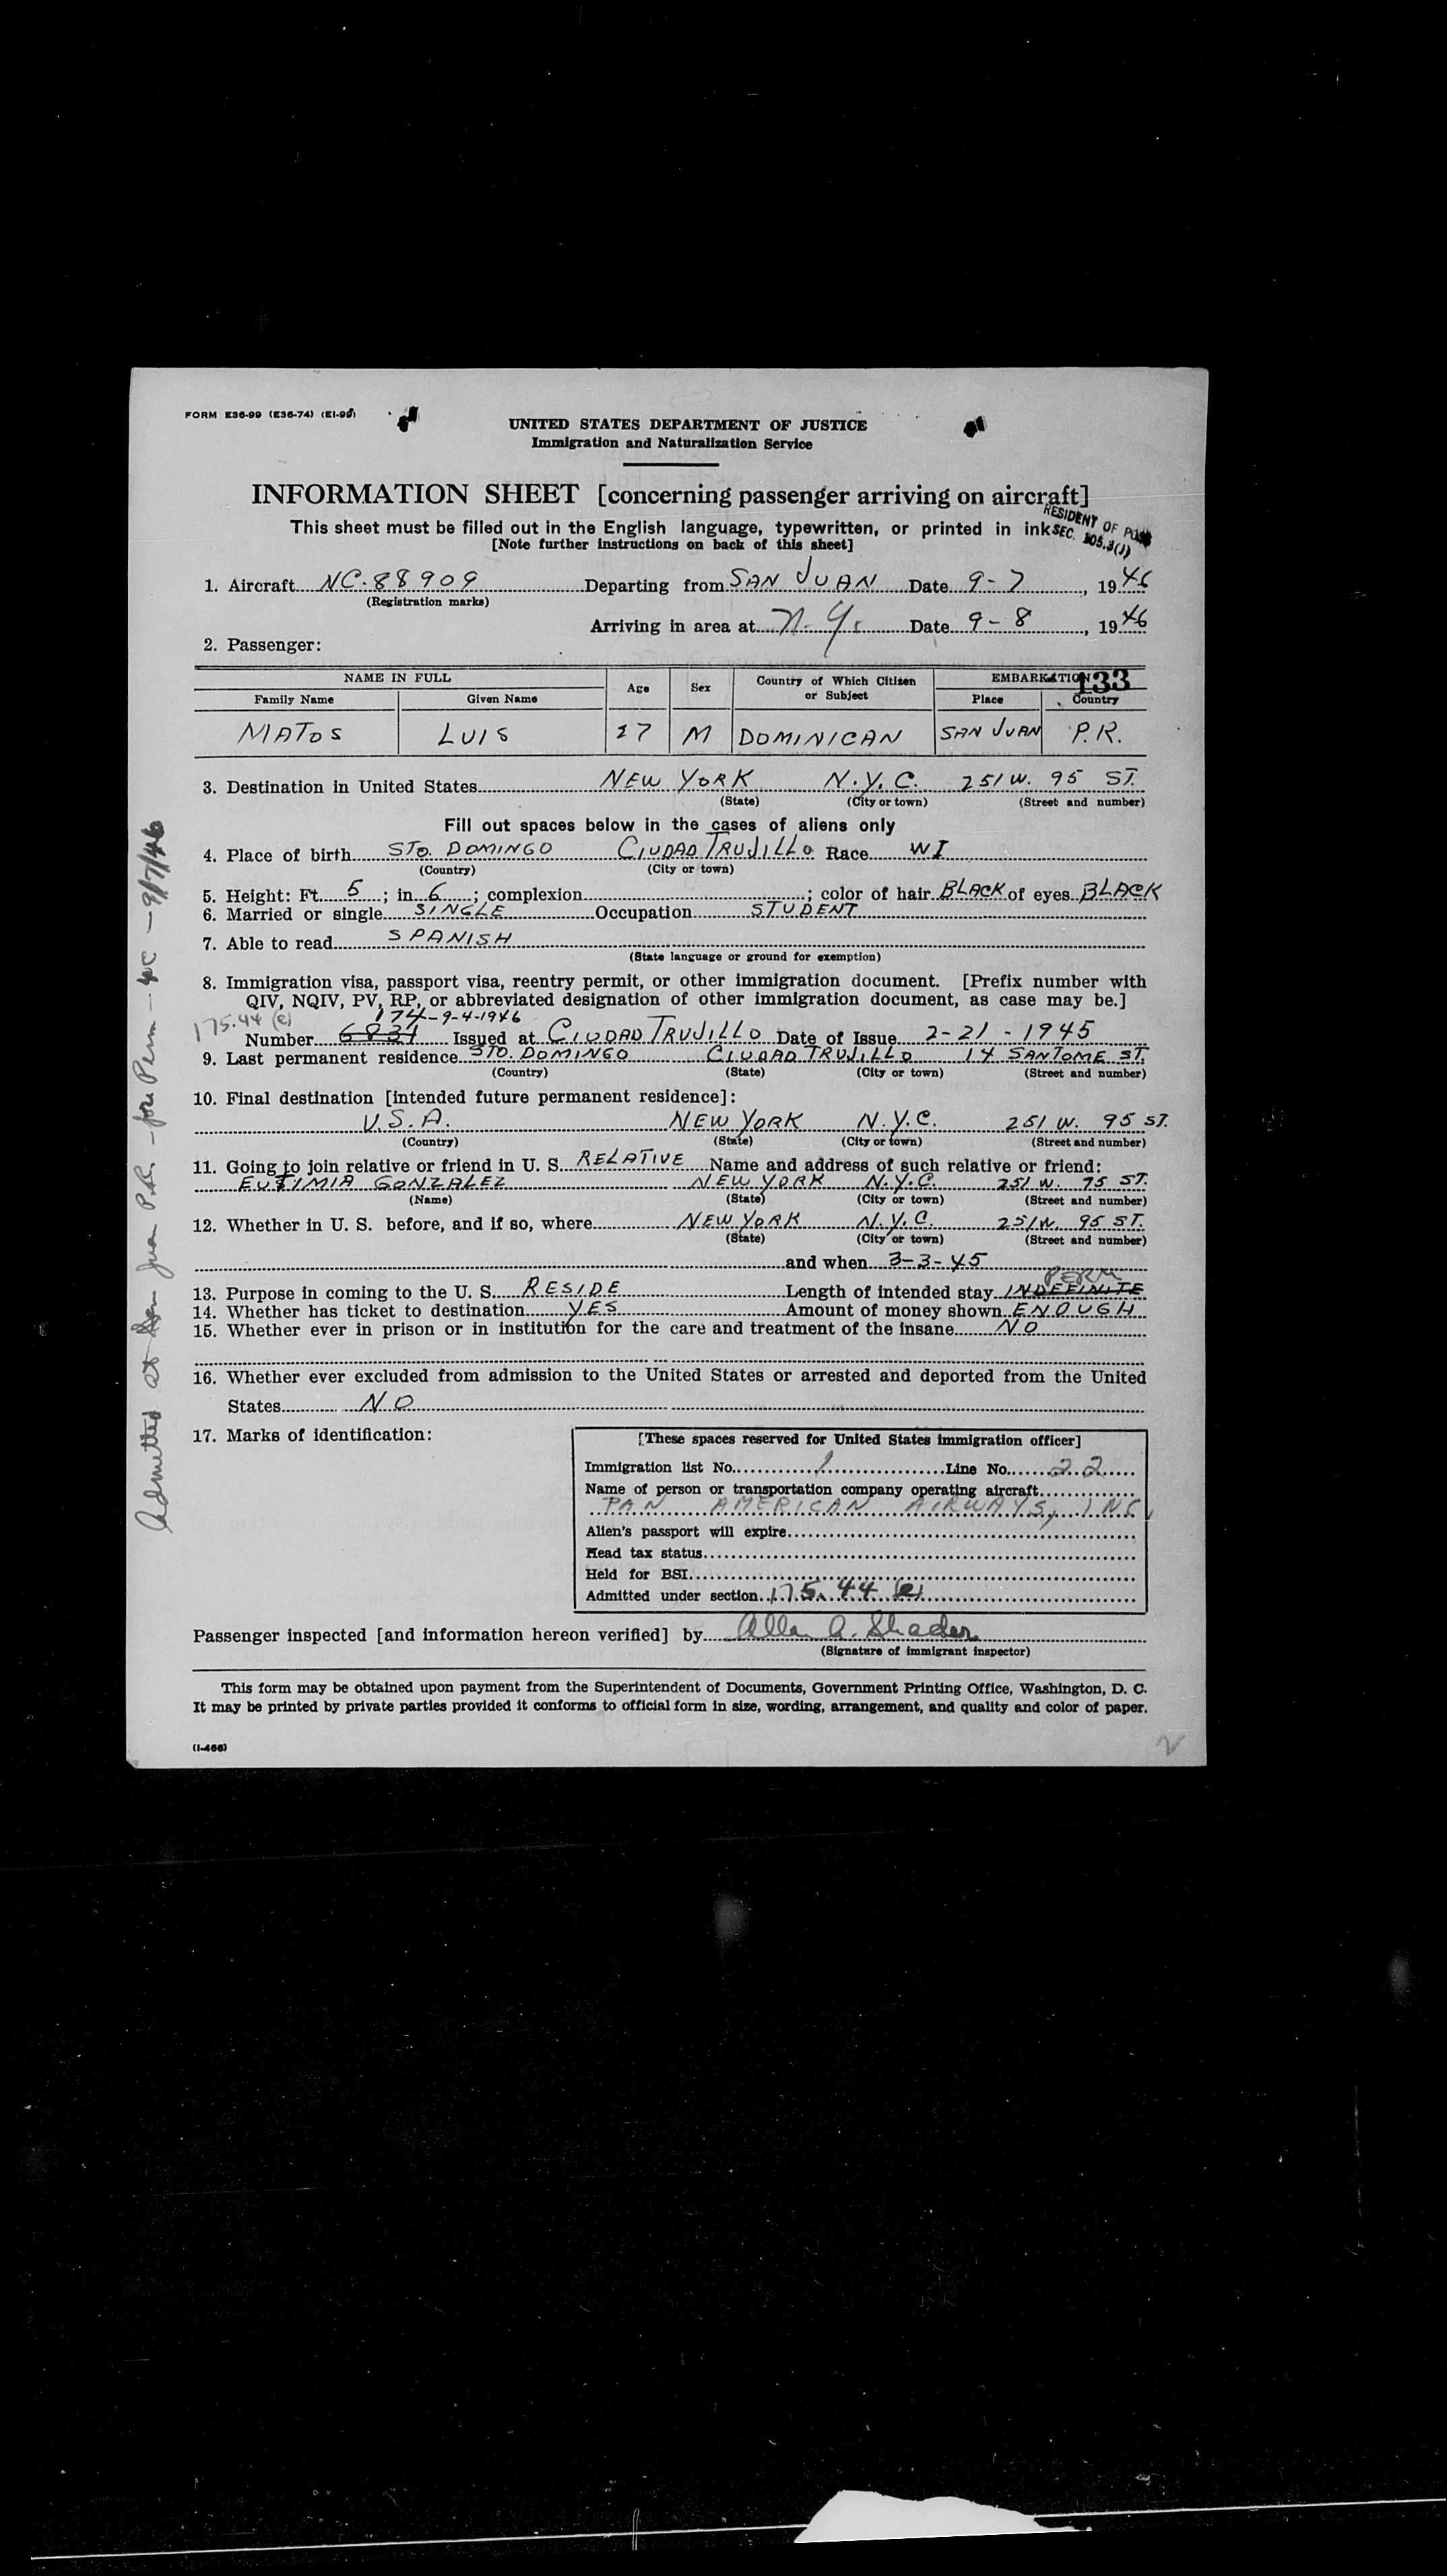 FORM E36-99 (E36-74) (EI-99)
UNITED STATES DEPARTMENT OF JUSTICE
Immigration and Naturalization Service
INFORMATION SHEET [concerning passenger arriving on aircraft]
This sheet must be filled out in the English language, typewritten, or printed in ink.
[Note further instructions on back of this sheet]
RESIDENT OF
SEC. 105.3(J)
1. Aircraft NC-88909 Departing from SAN JUAN Date 9-7, 1946
(Registration marks)
Arriving in area at N.Y. Date 9-8, 1946
2. Passenger:
NAME IN FULL Age Sex Country of Which Citizen or Subject EMBARKATION 133
Family Name Given Name Place Country
MATOS LUIS 17 M DOMINICAN SAN JUAN P.R.
3. Destination in United States NEW YORK N.Y.C. 251 W. 95 ST.
(State) (City or town) (Street and number)
Fill out spaces below in the cases of aliens only
4. Place of birth STO. DOMINGO CIUDAD TRUJILLO Race WI
(Country) (City or town)
5. Height: Ft. 5; in. 6; complexion; color of hair BLACK of eyes BLACK
6. Married or single SINGLE Occupation STUDENT
7. Able to read SPANISH
(State language or ground for exemption)
8. Immigration visa, passport visa, reentry permit, or other immigration document. [Prefix number with
QIV, NQIV, PV, RP, or abbreviated designation of other immigration document, as case may be.]
175.44 (e) 174-9-4-1946
Number 6831 Issued at CIUDAD TRUJILLO Date of Issue 2-21-1945
9. Last permanent residence STO. DOMINGO CIUDAD TRUJILLO 14 SANTOME ST.
(Country) (State) (City or town) (Street and number)
10. Final destination [intended future permanent residence]:
U.S.A. NEW YORK N.Y.C. 251 W. 95 ST.
(Country) (State) (City or town) (Street and number)
11. Going to join relative or friend in U. S. RELATIVE Name and address of such relative or friend:
EUFIMIA GONZALEZ NEW YORK N.Y.C. 251 W. 95 ST.
(Name) (State) (City or town) (Street and number)
12. Whether in U. S. before, and if so, where NEW YORK N.Y.C. 251 W. 95 ST.
(State) (City or town) (Street and number)
and when 3-3-45
PERM
13. Purpose in coming to the U. S. RESIDE Length of intended stay INDEFINITE
14. Whether has ticket to destination YES Amount of money shown ENOUGH
15. Whether ever in prison or in institution for the care and treatment of the insane NO
16. Whether ever excluded from admission to the United States or arrested and deported from the United
States NO
17. Marks of identification:
[These spaces reserved for United States immigration officer]
Immigration list No. 1 Line No. 22
Name of person or transportation company operating aircraft
PAN AMERICAN AIRWAYS, INC.
Alien's passport will expire
Head tax status
Held for BSI
Admitted under section 175.44 (e)
Passenger inspected [and information hereon verified] by Allan A. Shader
(Signature of immigrant inspector)
This form may be obtained upon payment from the Superintendent of Documents, Government Printing Office, Washington, D. C.
It may be printed by private parties provided it conforms to official form in size, wording, arrangement, and quality and color of paper.
(I-466)
2
Admitted at San Juan P.R. - for Perm - - 9/7/46